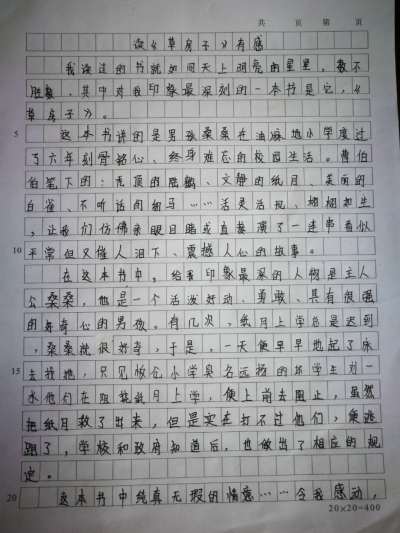 共 页 第 页
读《草房子》有感
我读过的书就如同天上明亮的星星，数不
胜数，其中对我印象最深刻的一本书是它，《
草房子》。
5 这本书讲的是男孩桑桑在油麻地小学度过
了六年刻骨铭心、终身难忘的校园生活。曹伯
伯笔下的：秃顶的陆鹤、文静的纸月、美丽的
白雀、不听话的细马……活灵活现、栩栩如生
，让我们仿佛亲眼目睹或直接演了一连串看似
10 平常但又催人泪下、震撼人心的故事。
在这本书中，给我印象最深的人物是主人
公桑桑，他是一个活泼好动、勇敢、具有很强
的好奇心的男孩。有几次，纸月上学总是迟到
，桑桑就很好奇，于是，一天便早早地起了床
15 去找她，只见板仓小学臭名远扬的坏学生刘一
水他们在阻挠纸月上学，便上前去阻止，虽然
把纸月救了出来，但是实在打不过他们，便逃
跑了，学校和政府知道后，也做出了相应的规
定。
20 这本书中纯真无瑕的情意……令我感动，
20×20=400